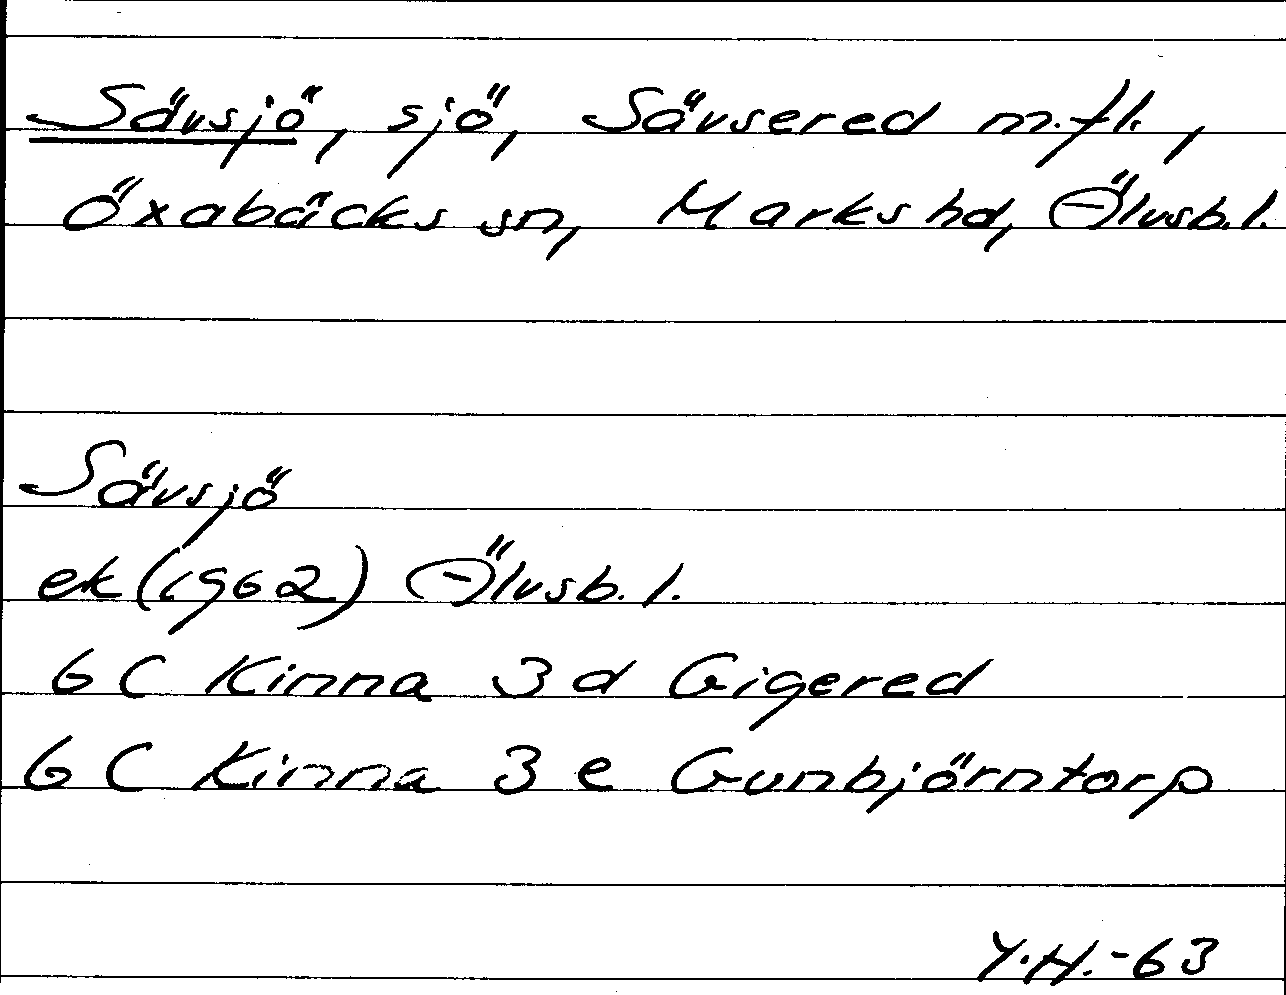 Sävsjö, sjö, Sävsered m.fl.,
Öxabäcks sn, Marks hd, Älvsb.l.
Sävsjö
ek (1962) Älvsb.l.
6 C Kinna 3 d Gigered
6 C Kinna 3 e Gunbjörntorp
Y.H.-63